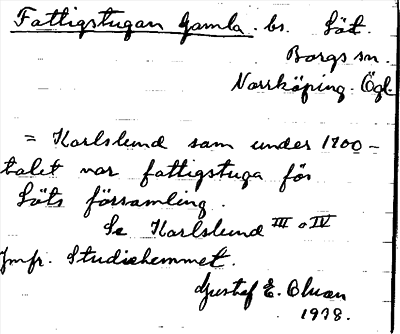 Fattigstugan Gamla. bs. Löt.
Borgs sn.
Norrköping. Ögl.
= Karlslund som under 1700-
talet var fattigstuga för
Löts församling.
Se Karlslund III o IV
Jmfr. Studiehemmet.
Gustaf E. Bluan
1938.